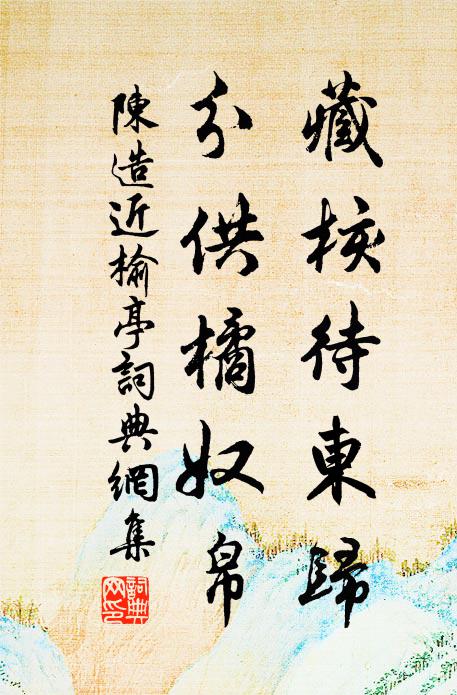 藏核待東歸
分供橘奴帛
陳造近榆亭詞典網集
詞典網印